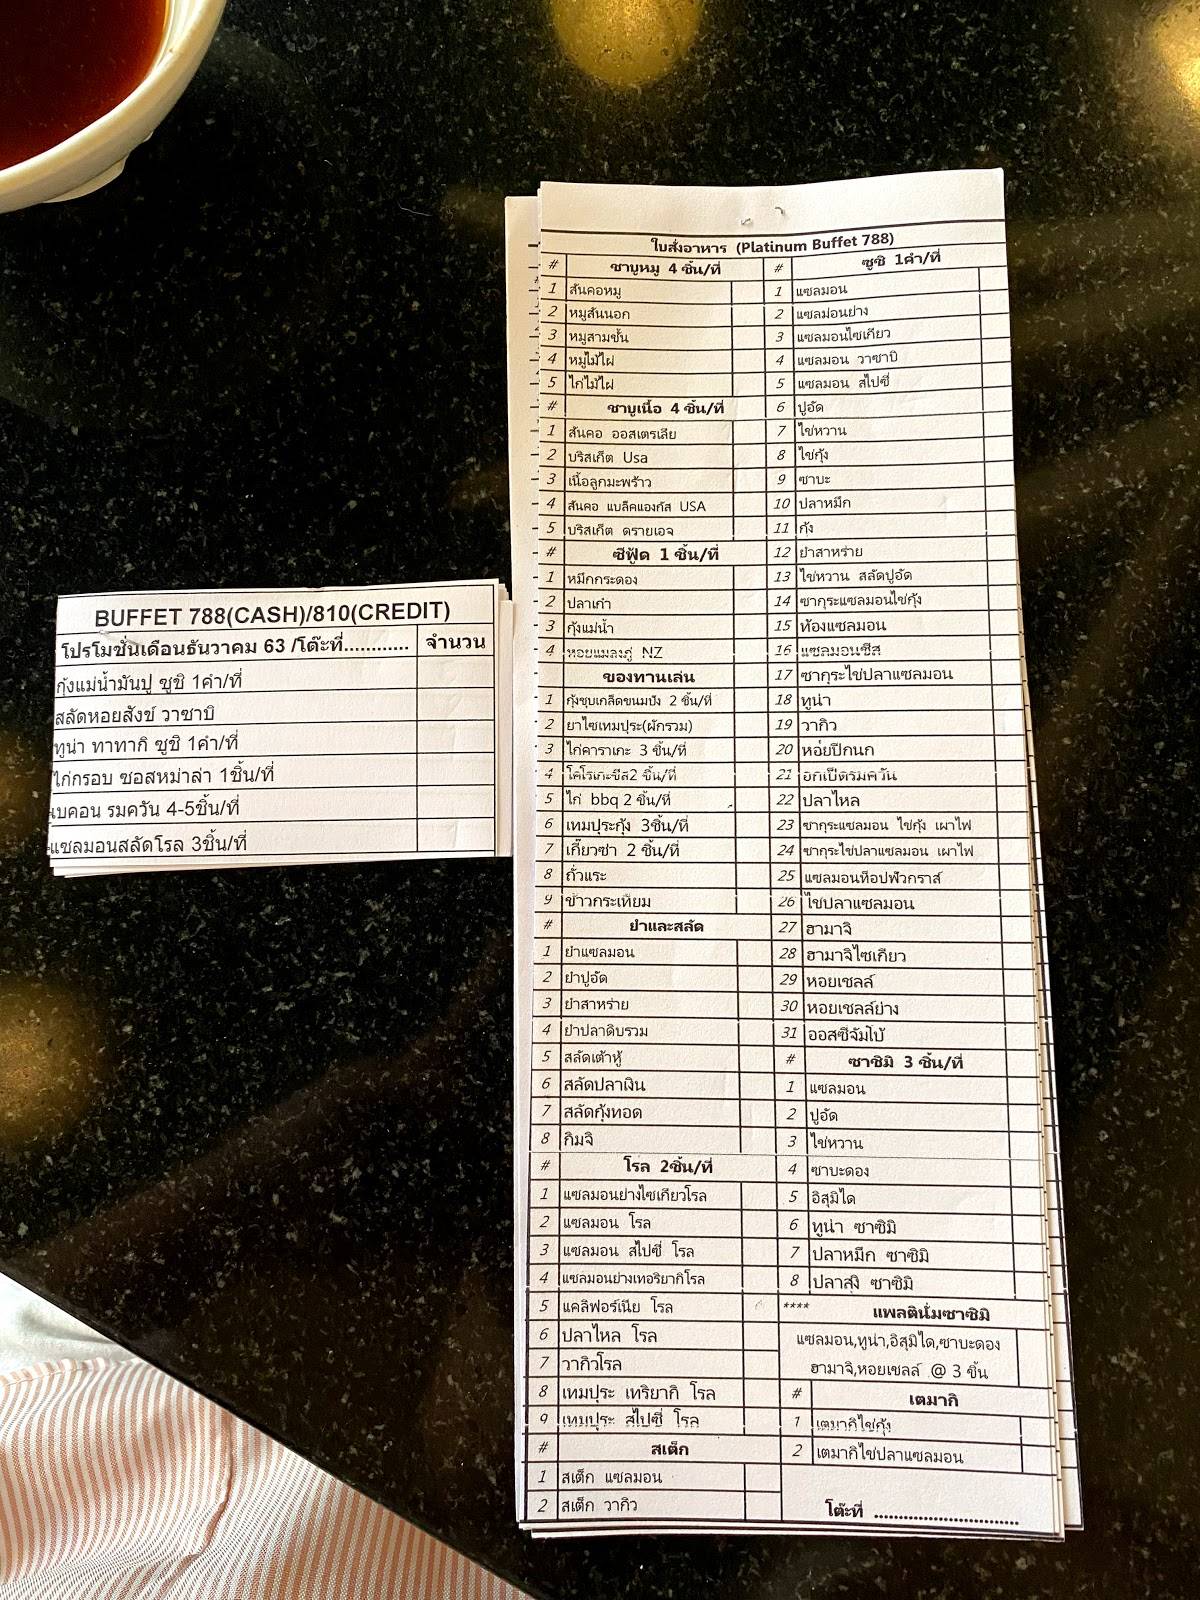 BUFFET 788(CASH)/810(CREDIT)
โปรโมชั่นเดือนธันวาคม 63 /โต๊ะที่............ จำนวน
กุ้งแม่น้ำมันปู ซูชิ 1คำ/ที่
สลัดหอยสังข์ วาซาบิ
ทูน่า ทาทากิ ซูชิ 1คำ/ที่
ไก่กรอบ ซอสหม่าล่า 1ชิ้น/ที่
เบคอน รมควัน 4-5ชิ้น/ที่
แซลมอนสลัดโรล 3ชิ้น/ที่
ใบสั่งอาหาร (Platinum Buffet 788)
# ชาบูหมู 4 ชิ้น/ที่
1 สันคอหมู
2 หมูสันนอก
3 หมูสามชั้น
4 หมูไม้ไผ่
5 ไก่ไม้ไผ่
# ชาบูเนื้อ 4 ชิ้น/ที่
1 สันคอ ออสเตรเลีย
2 บริสเก็ต Usa
3 เนื้อลูกมะพร้าว
4 สันคอ แบล็คแองกัส USA
5 บริสเก็ต ดรายเอจ
# ซีฟู้ด 1 ชิ้น/ที่
1 หมึกกระดอง
2 ปลาเก๋า
3 กุ้งแม่น้ำ
4 หอยแมลงภู่ NZ
ของทานเล่น
1 กุ้งชุบเกล็ดขนมปัง 2 ชิ้น/ที่
2 ยาไซเทมปุระ(ผักรวม)
3 ไก่คาราเกะ 3 ชิ้น/ที่
4 โคโรเกะชีส2 ชิ้น/ที่
5 ไก่ bbq 2 ชิ้น/ที่
6 เทมปุระกุ้ง 3ชิ้น/ที่
7 เกี๊ยวซ่า 2 ชิ้น/ที่
8 ถั่วแระ
9 ข้าวกระเทียม
# ยำและสลัด
1 ยำแซลมอน
2 ยำปูอัด
3 ยำสาหร่าย
4 ยำปลาดิบรวม
5 สลัดเต้าหู้
6 สลัดปลาเงิน
7 สลัดกุ้งทอด
8 กิมจิ
# โรล 2ชิ้น/ที่
1 แซลมอนย่างไซเกียวโรล
2 แซลมอน โรล
3 แซลมอน สไปซี่ โรล
4 แซลมอนย่างเทอริยากิโรล
5 แคลิฟอร์เนีย โรล
6 ปลาไหล โรล
7 วากิวโรล
8 เทมปุระ เทริยากิ โรล
9 เทมปุระ สไปซี่ โรล
# สเต็ก
1 สเต็ก แซลมอน
2 สเต็ก วากิว
# ซูชิ 1คำ/ที่
1 แซลมอน
2 แซลม่อนย่าง
3 แซลมอนไซเกียว
4 แซลมอน วาซาบิ
5 แซลมอน สไปซี่
6 ปูอัด
7 ไข่หวาน
8 ไข่กุ้ง
9 ซาบะ
10 ปลาหมึก
11 กุ้ง
12 ยำสาหร่าย
13 ไข่หวาน สลัดปูอัด
14 ซากุระแซลมอนไข่กุ้ง
15 ท้องแซลมอน
16 แซลมอนชีส
17 ซากุระไข่ปลาแซลมอน
18 ทูน่า
19 วากิว
20 หอยปีกนก
21 อกเป็ดรมควัน
22 ปลาไหล
23 ซากุระแซลมอน ไข่กุ้ง เผาไฟ
24 ซากุระไข่ปลาแซลมอน เผาไฟ
25 แซลมอนท็อปฟัวกราส์
26 ไข่ปลาแซลมอน
27 ฮามาจิ
28 ฮามาจิไซเกียว
29 หอยเชลล์
30 หอยเชลล์ย่าง
31 ออสซี่จัมโบ้
# ซาชิมิ 3 ชิ้น/ที่
1 แซลมอน
2 ปูอัด
3 ไข่หวาน
4 ซาบะดอง
5 อิสุมิได
6 ทูน่า ซาซิมิ
7 ปลาหมึก ซาซิมิ
8 ปลาสุงิ ซาซิมิ
**** แพลตินั่มซาซิมิ
แซลมอน,ทูน่า,อิสุมิได,ซาบะดอง
ฮามาจิ,หอยเชลล์ @ 3 ชิ้น
# เตมากิ
1 เตมากิไข่กุ้ง
2 เตมากิไข่ปลาแซลมอน
โต๊ะที่ .............................